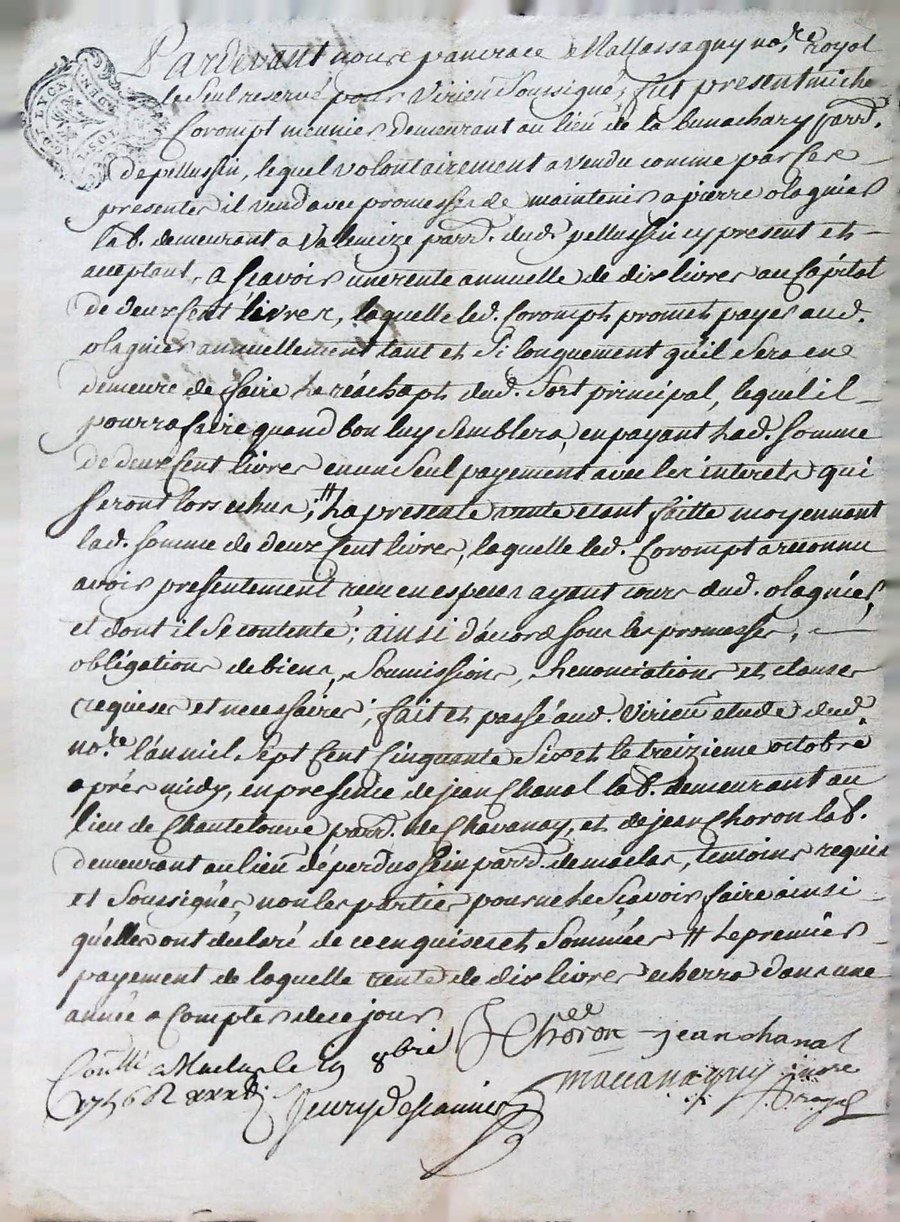 Pardevant nous pancrace Mallassagny no.re royal
le seul reservé pour Virieu soussigné, fut present miche
Corompt meunier demeurant au lieu de la bunachary parr.
de pellussin, lequel volontairement a vendu comme par ses
presentes il vend avec promesses de maintenir a pierre olagnier
lab. demeurant a Valencize parr. dud. pellussin cy present et
aceptant, a scavoir une rente annuelle de dix livres au Capital
de deux Cent livres, laquelle led. Corompt promet payer aud.
olagnier annuellement tant et si longuement qu'il sera en
demeure de faire le réachapt dud. sort principal, lequel il
pourra faire quand bon luy semblera, en payant lad. somme
de deux Cent livres en un seul payement avec les interets qui
seront lors echus; # La presente vente etant faitte moyennant
lad. somme de deux Cent livres, laquelle led. Corompt a reconnu
avoir presentement receu en especes ayant cours dud. olagnier,
et dont il se contente; ainsi d'acord sous les promesses,
obligations de biens, soumissions, Renonciations et clauses
requises et necessaires; fait et passé aud. Virieu etude dud.
no.re l'an mil sept Cent Cinquante Six et le treizieme octobre
aprés midy, en presence de jean Chanal lab. demeurant au
lieu de Chantelouve parr. de Chavanay, et de jean Choron lab.
demeurant au lieu de perdussein parr. de maclas, temoins requis
et soussignés, non les parties pour ne le sçavoir faire ainsi
qu'elles ont declaré de ce enquises et sommées # Le premier
payement de laquelle rente de dix livres echerra dans une
année a Compter de ce jour
J Choron jean chanal
Con.llé a Maclas le 8bre
1756 R
Fleury Descannier
Maccanagny no.re
royal